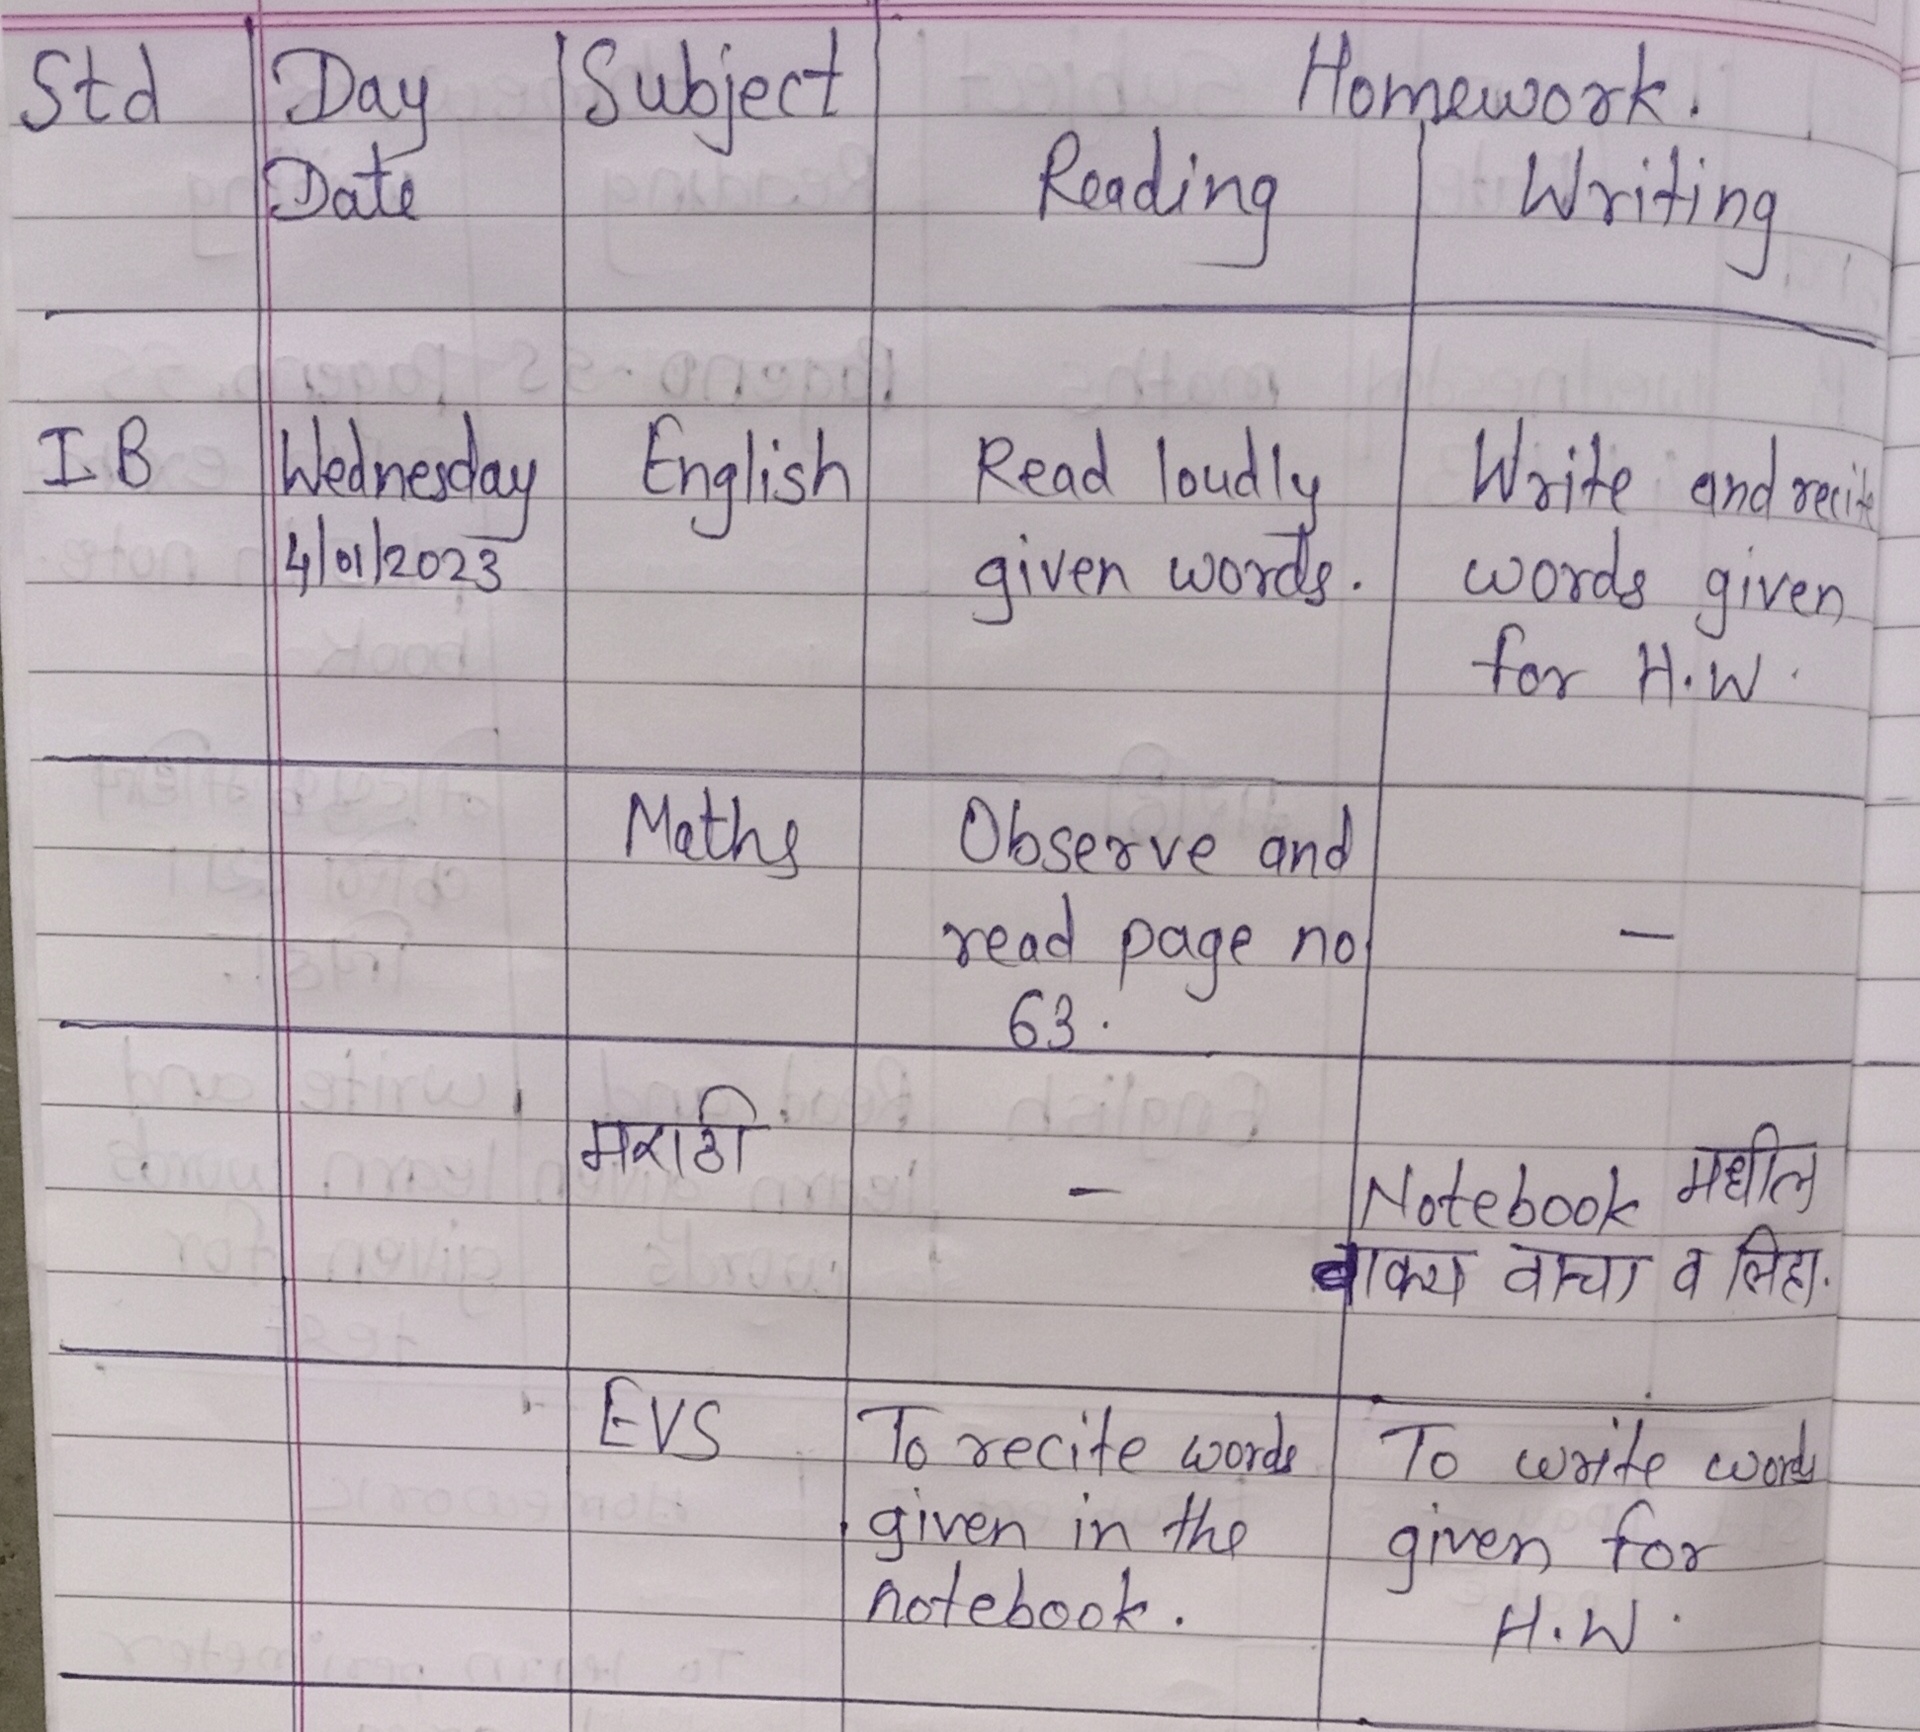 Std Day Subject Homework.
Date Reading Writing
I B Wednesday English Read loudly Write and recite
4/01/2023 given words. words given
for H.W.
Maths Observe and
read page no –
63.
मराठी – Notebook मधील
वाक्य वाचा व लिहा.
EVS To recite words To write words
given in the given for
notebook. H.W.